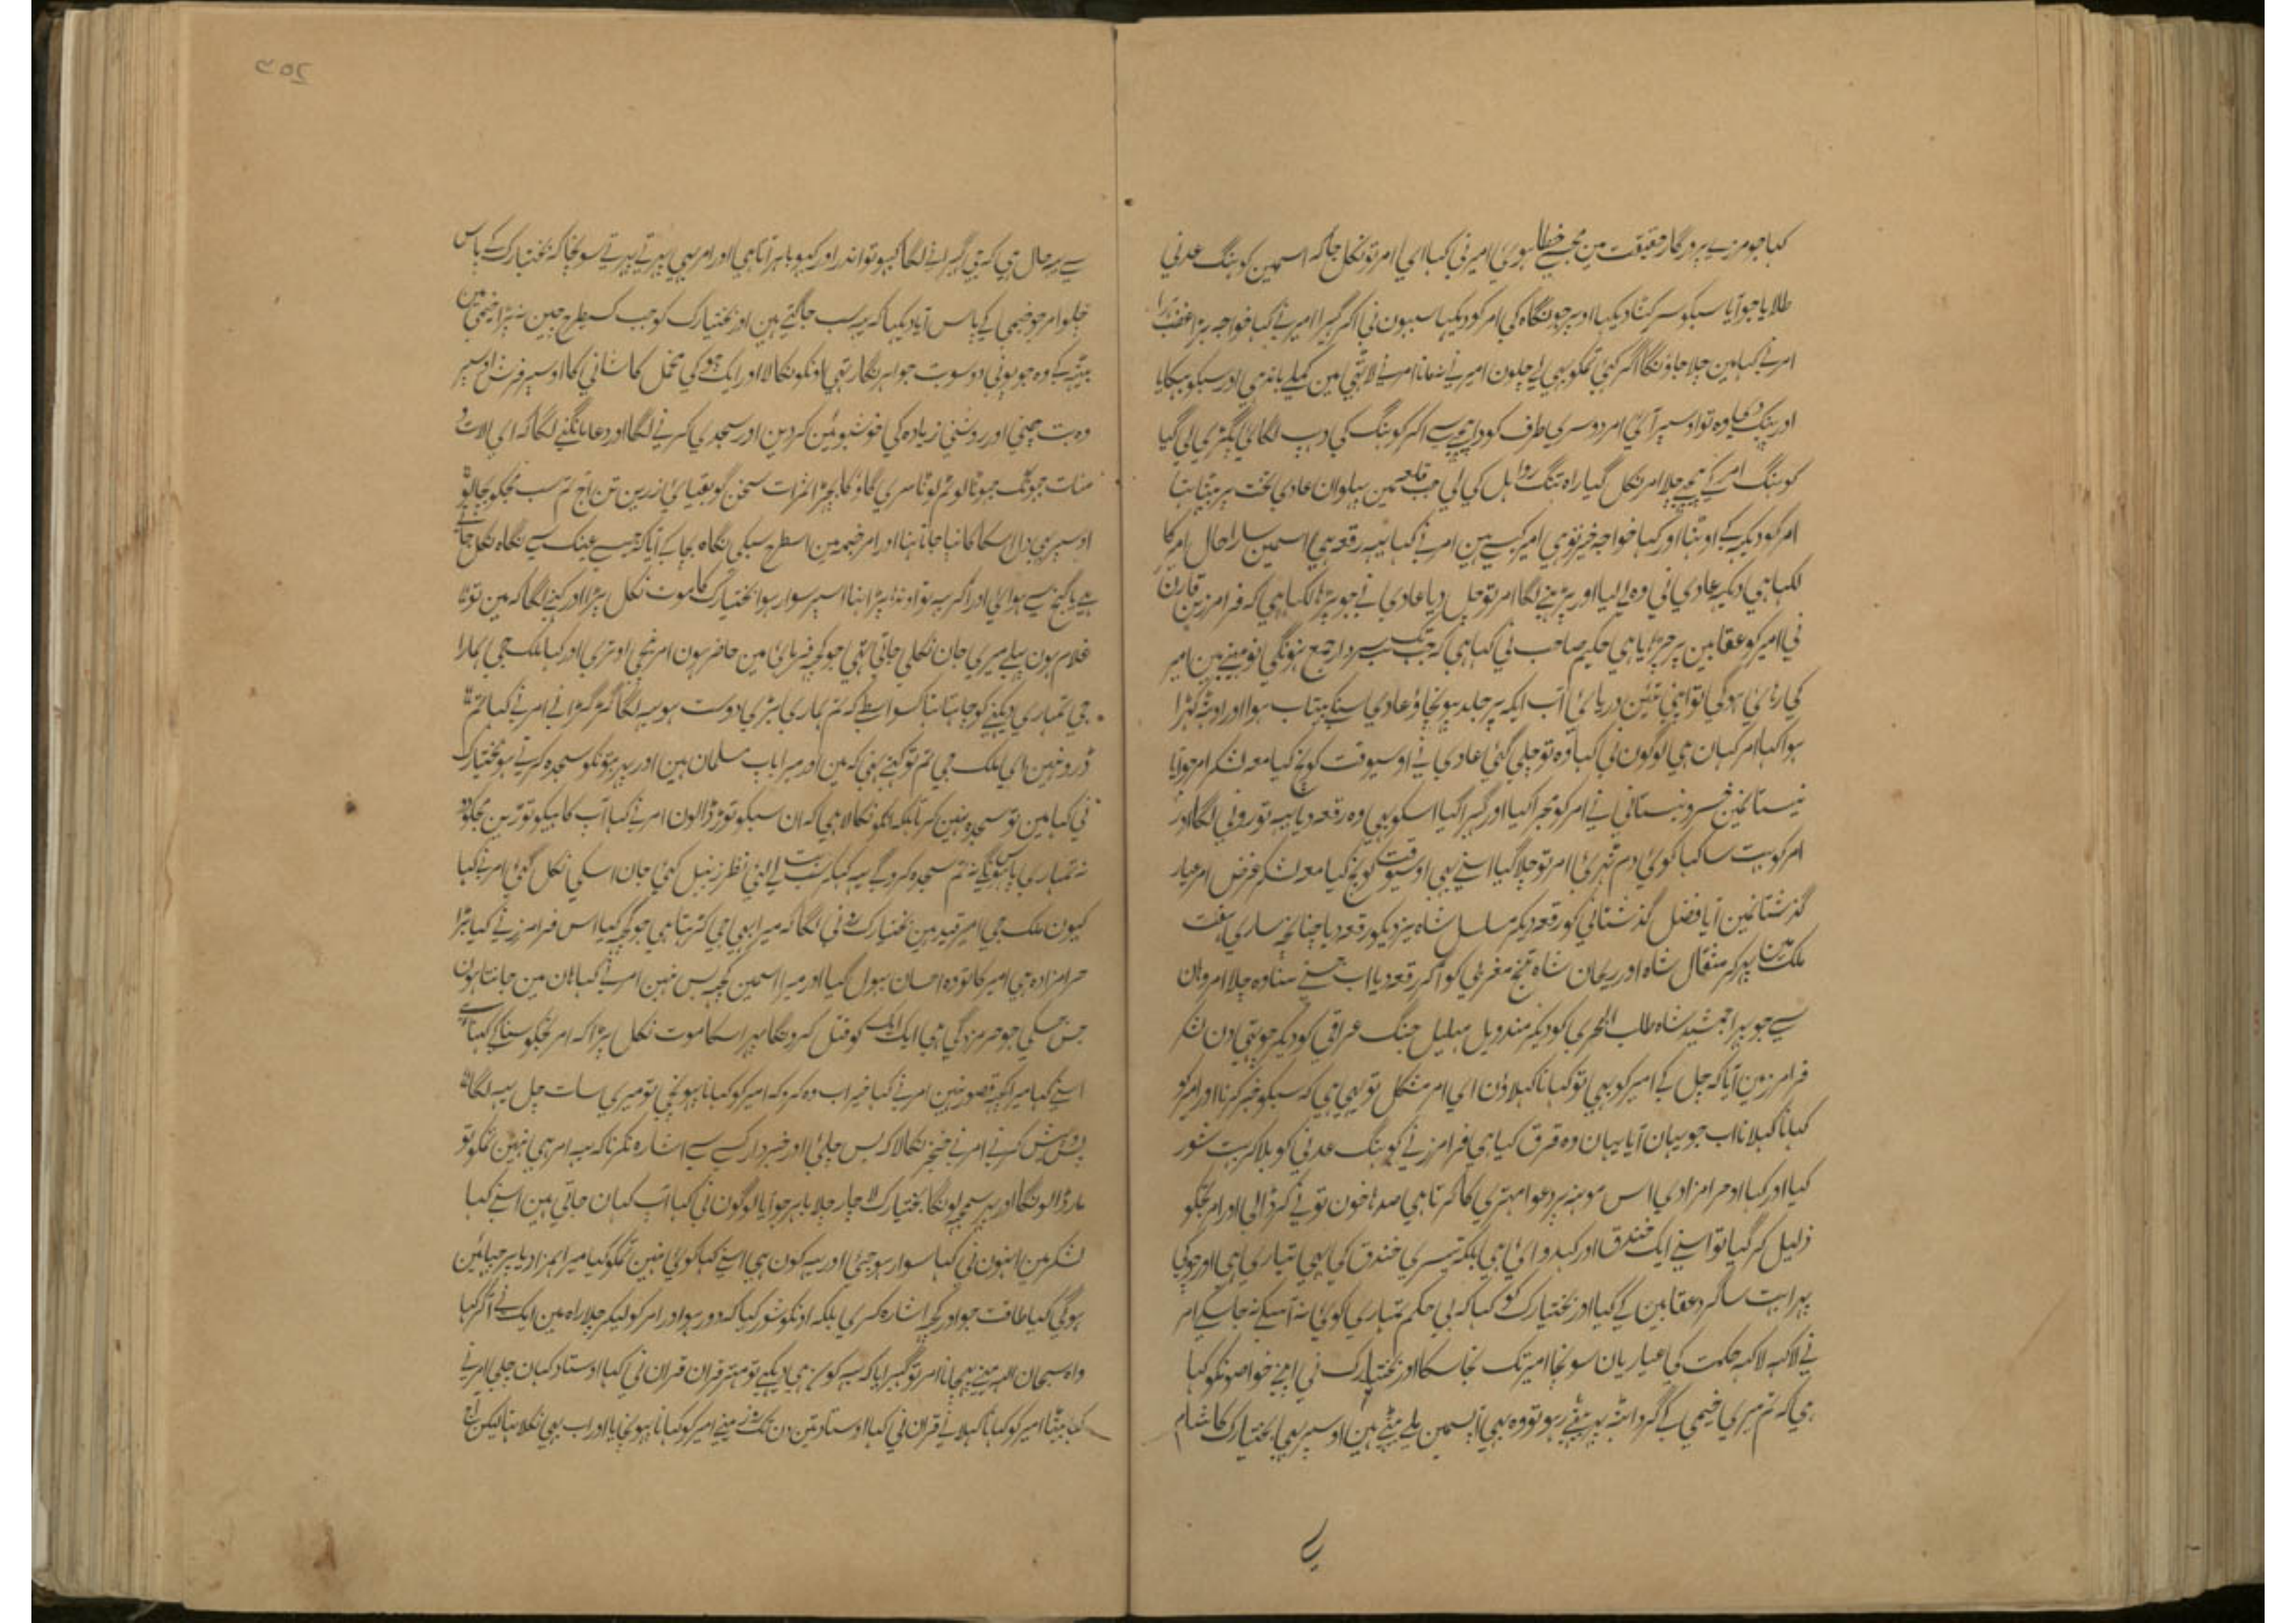 کہا جو مرزے پروردگار حقیقت مین مجسے خطا ہوئی امیر نی کہا ای امر تو نکل جا کہ اسمین کوہنگ عدنی
طلایا جو آیا سبکو سر کٹا دیکھا اوہر جو نگاہ کی امر کو دیکھا سبہون نی اکر گہیرا امیر نے کہا خواجہ بڑا غضب ہوا
امر نے کہا مین چلا جاؤنگا اگر کہئی تمکو بہی لی چلون امیر نے نمانا امر نے لاتھی مین کمیلے باندہی اور سبکو بہکایا
اور پہنک دی وہ تو اوسپر آئی امر دوسری طرف کود پیچہے سے اکر کوہنگ کی دہپ لگائی پگڑی لی گیا
کوہنگ امر کے پیچہے چلا امر نکل گیا راہ تنگ رواحل کی لی جب قلعہ مین پہلوان عادی تخت پر بیٹہا تہا
امر کو دیکہ کے اوٹہا اور کہا خواجہ خیر تو ہی امیر کیسے ہین امر نے کہا یہہ رقعہ ہی اسمین سارا حال امیر کا
لکہا ہی دیکہ عادی نی وہ لے لیا اور پڑہنے لگا امر تو چل دیا عادی نے جو پڑہا لکہا ہی کہ فرامرز بن قارن
نی امیر کو عقابین پر چڑہایا ہی حکیم صاحب نی کہا ہی کہ جب تک سب سردار جمع نہونگی نو مہینے مین امیر
کی رہائی ہوگی تو اپنی تئین دریائی آب ایکہ پر جلد پہونچاؤ عادی سنکے بیتاب ہوا اور اوٹہ کہڑا
ہوا کہا امر کہان ہی لوگون نی کہا وہ تو چلی گئی عادی نے اوسیوقت کوچ کیا معہ لشکر امر جو آیا
نیستانمین خسرو نیستانی نے امر کو مجرا کیا اور گہبرا گیا اسکو بہی وہ رقعہ دیا یہہ تو رونی لگا اور
امر کو بہت سا کہا کوئی دم ٹہری امر تو چلا گیا اسنے بہی اوسیوقت کوچ کیا معہ لشکر غرض امر عیار
گذشتانمین آیا فضل گذشتانی کو رقعہ دیکہ سلسل شاہ یزدیکو رقعہ دیا چنانچہ ساری ہفت
ملک مین پہر کر مثقال شاہ اور ریحان شاہ تیغ مغربی کو اکر رقعہ دیا اب جسنے سنا وہ چلا امر وہان
سے جو پہرا جمشید شاہ طالب البحری کو دیکر مندویل مہلیل جنگ عراقی کو دیکر چوتہی دن لشکر
فرامرز مین آیا کہ چل کے امیر کو بہی تو کہانا کہلاؤن ای امر مشکل تو یہی ہی کہ سبکو خبر کرنا اور امیر کو
کہانا کہلانا اب جو یہان آیا یہان وہ فرق کیا ہی فرامرز نے کوہنگ عدنی کو بلا کر بہت شور
کیا اور کہا او حرامزادی اس مونہہ پر دعوا مہتری کا کرتا ہی صدہا خون تو نے کر ڈالی اور امر تجکو
ذلیل کر گیا تو اسنے ایک خندق اور کہدوائی ہی بلکہ تیسری خندق کی بہی تیاری ہی اور چوکی
پہرا بہت سا گرد عقابین کے گیا اور بختیارک کو کہا کہ بی حکم تمہاری کوئی نہ آ سکے نہ جا سکے امر
نے لاکہہ لاکہہ حکمت کی عیاریان سونچا امیر تک نجا سکا اور بختیارک نی اپنے خواصونکو کہا
ہی کہ تم میری خیمی کے گرد ا بیٹہہ رہو تو وہ بہی اپسمین ملے بیٹہے ہین اوسپر بہی بختیارک کا شام
سے یہہ حال ہی کہ جی گہبرانے لگا کبہو تو اندر اور کبہو باہر آتا ہی اور امر بہی پہرتے پہرتے سونچا کہ بختیارک کے پاس
چلو امر جو خیمی کے پاس آیا دیکہا کہ یہہ سب جاگتے ہین اور بختیارک کو جب کسیطرح چین نہ پڑا خیمی مین
بیٹہہ کے وہ چوہوٹی دو سو بت جواہر نگار تہی اونکو نکالا اور ایک چوکی مخمل کاشانی کا اوسپر فرش اوسپر
وہ بت چنی اور روشنی زیادہ کی خوشبوئین کر دین اور سجدی کرنے لگا اور دعا مانگنے لگا کہ ای لات و
منات
اوسپر بہی دل اسکا کانپا جاتا تہا اور امر خیمہ مین اسطرح سبکی نگاہ بچا کے آیا کہ جیسے عینک سے نگاہ نکل جاتی
غلام ہون پہلے میری جان نکلی جاتی تہی جو کچہ فرمائی مین حاضر ہون امر نیچی اوتری اور کہا ملک جی ہمارا
جی تمہاری دیکہنے کو چاہتا تہا کسواسطے کہ تم ہماری بڑی دوست ہو یہہ لگا گڑگڑانے امر نے کہا تم
ڈرو نہین ای ملک جی تم تو کہتے تہی کہ مین اور میرا باپ مسلمان ہین اور یہہ بتونکو سجدہ کرتے ہو بختیارک
نی کہا مین تو سجدہ نہین کرتا بلکہ انکو نکالا ہی کہ ان سبکو توڑ ڈالون امر نے کہا آپ کاہیکو توڑین مجکو دو
نہ تمہاری پاس ہونگے نہ تم سجدہ کروگے یہہ کہہ کر سب بت لے لئی نظر زنبیل کئی جان اسکی نکل گئی امر نے کہا
کیون ملک جی امیر قید مین بختیارک رونی لگا کہ میرا بہی جی کڑہتا ہی جو کچہ کیا اس فرامرز نے کیا بڑا
حرامزادہ ہی امیر کا تو وہ احسان بہول گیا اور میرا اسمین کچہہ بس نہین امر نے کہا ہان مین جانتا ہون
جس جسکی جو حرمزدگی ہی ایک ایک کو قتل کرونگا پہر اسکا موت نکل پڑا کہ امر تجکو سنا کے کہتا ہے
اسنے کہا میرا کچہہ قصور نہین امر نے کہا خیر اب وہ کرو کہ امیر کو کہانا پہونچی تو میری سات چل یہہ لگا
پس و پیش کرنے امر نے خنجر نکالا کہ بس چلئی اور خبردار کسے سے اشارہ نکرنا کہ یہہ امر ہی نہین تمکو تو
مار ڈالونگا اور پہر سمجہہ لونگا بختیارک لاچار چلا باہر جو آیا لوگون نی کہا آپ کہان جاتی ہین اسنے کہا
لشکر مین انہون نی کہا سوار ہو جئی اور یہہ کون ہی اسنے کہا کوئی نہین تمکو کیا میرا ہمزاد یا پرچہائین
ہوگی کیا طاقت جو اور کچہہ اشارہ کری بلکہ اونکو شور کیا کہ دور ہو اور امر کو لیکر چلا راہ مین ایک نے اکر کہا
واہ سبحان اللہ مینے پہچانا امر تو گہبرایا کہ یہہ کون ہی دیکہے تو مہتر قران قران نی کہا اوستاد کہان چلی امر نے
کہا بیٹا امیر کو کہانا کہلانے قران نی کہا اوستاد تین دن تک روز مینے امیر کو کہانا پہونچایا اور اب بہی نکلا تہا لیکن آج